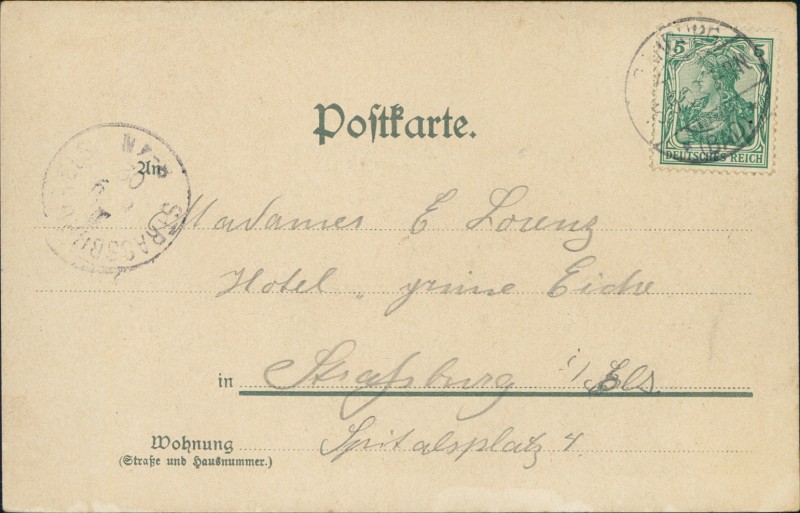 5 5
DEUTSCHES REICH
(BAD.)
Postkarte.
An
STRASSBURG
Madames E Lorenz
Hotel „ grüne Eiche
in Straßburg i/ Els
Wohnung Spitalsplatz 4
(Straße und Hausnummer.)